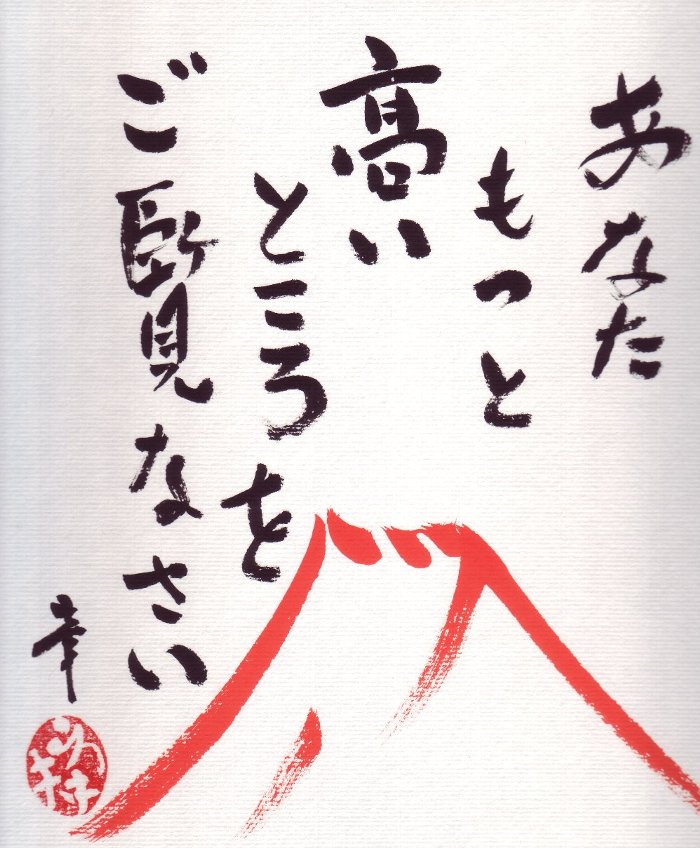 あなた
もっと
高い
ところを
ご覧なさい
幸